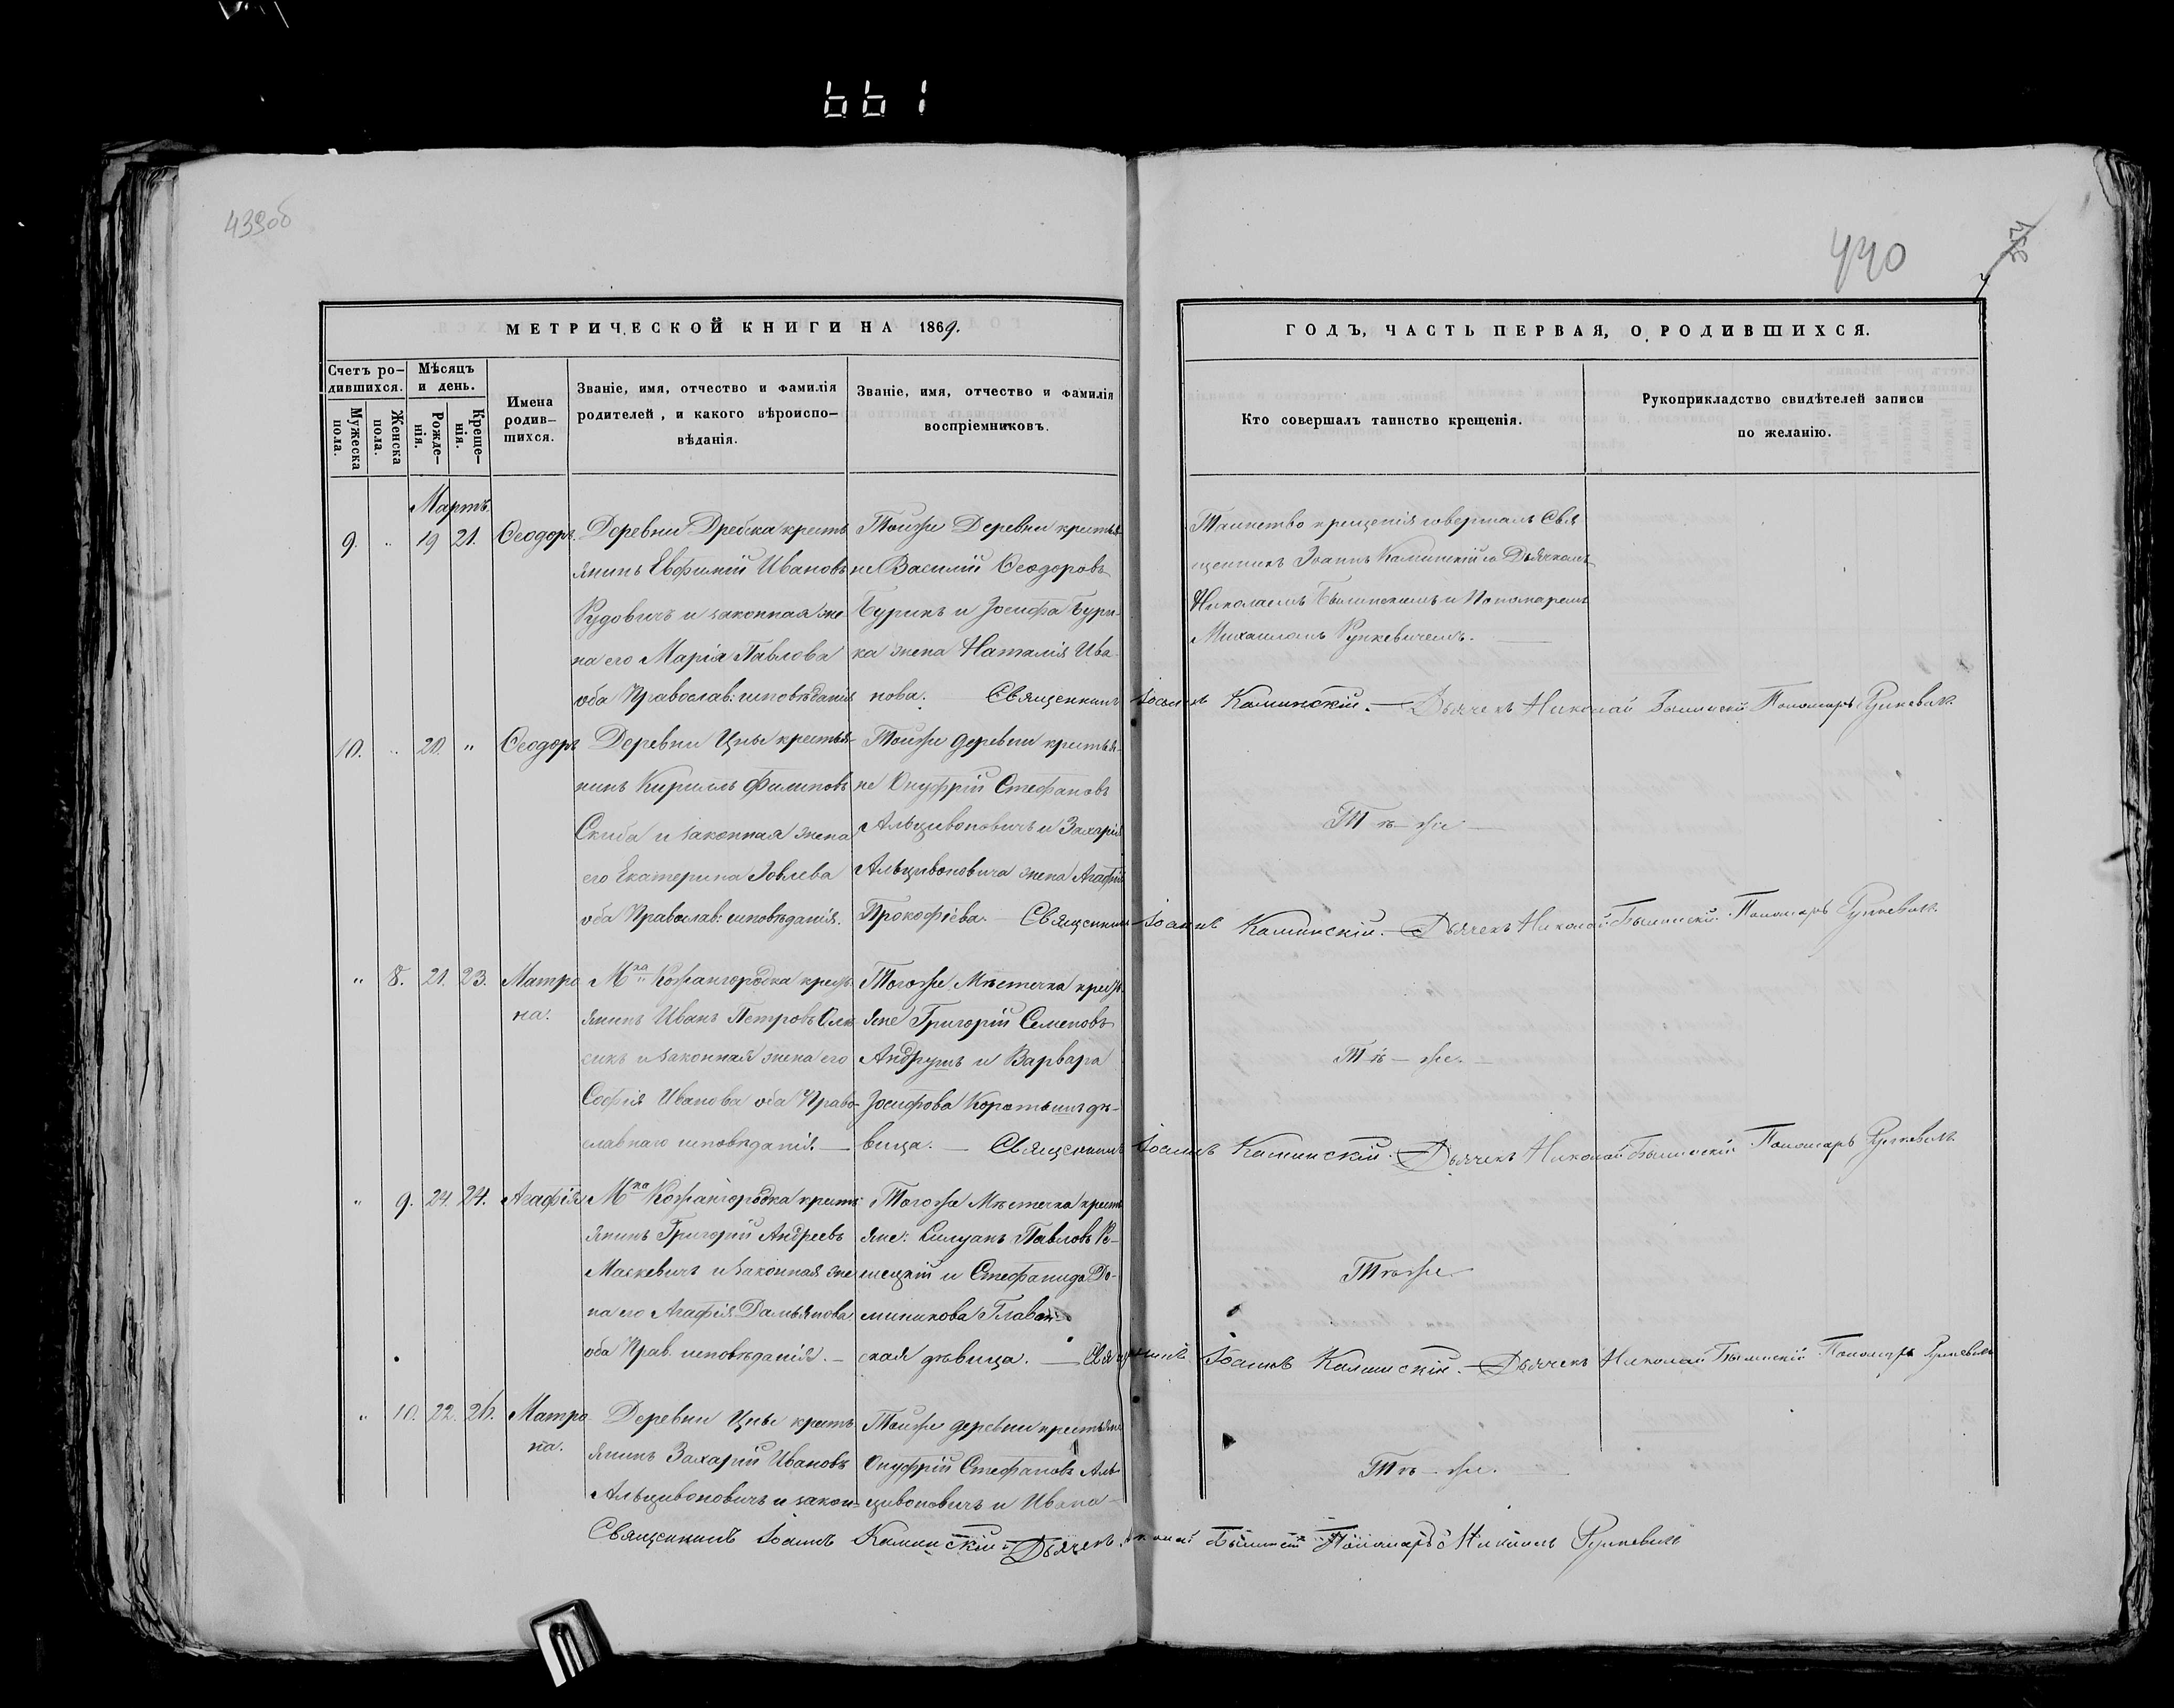 661
439об
440
МЕТРИЧЕСКОЙ КНИГИ НА 1869.
Счетъ ро-
дившихся.
Мужеска
пола.
Женска
пола.
Мѣсяцъ
и день.
Рожде-
нія.
Креще-
нія.
Имена
родив-
шихся.
Званіе, имя, отчество и фамилія
родителей, и какого вѣроиспо-
вѣданія.
Званіе, имя, отчество и фамилія
воспріемниковъ.
ГОДЪ, ЧАСТЬ ПЕРВАЯ, О РОДИВШИХСЯ.
Кто совершалъ таинство крещенія.
Рукоприкладство свидѣтелей записи
по желанію.
Мартъ
9. „ 19 21. Ѳеодоръ.
Деревни Дребска кресть
янинъ Евфимій Ивановъ
Рудовичъ и законная же-
на его Марія Павлова
оба Православ: исповѣданія
Тойже Деревни крестья
не Василій Ѳеодоровъ
Бурикъ и Іосифа Бури-
ка жена Наталія Ива-
нова.
Таинство крещенія совершалъ Свя
щенникъ Іоаннъ Каминскій съ Дьячкомъ
Николаемъ и Пономаремъ
Михаиломъ Рункевичемъ.
Священникъ Іоаннъ Каминскій. Дьячекъ Николай Пономарь Рункевичъ
10. „ 20. „ Ѳеодоръ
Деревни Цны крестья-
нинъ Кириллъ Филиповъ
Скиба и законная жена
его Екатерина Іовлева
оба Православ: исповѣданія.
Тойже деревни крестья-
не Онуфрій Стефановъ
Альцивоновичъ и Захарія
Альцивоновича жена Агафія
Прокофіева.
Тѣ-же
Священникъ Іоаннъ Каминскій. Дьячекъ Николай Пономарь Рункевичъ
„ 8. 21. 23. Матро
на.
М-ка Кожангородка кресть
янинъ Иванъ Петровъ Олк
сикъ и законная жена его
Софія Иванова оба Право-
славнаго исповѣданія
Тогоже Мѣстечка кресть
яне Григорій Семеновъ
Андрушъ и Варвара
Іосифова дѣ-
вица.
Тѣ-же.
Священникъ Іоаннъ Каминскій. Дьячекъ Николай Пономарь Рункевичъ
„ 9. 24. 24. Агафія
М-ка Кожангородка кресть
янинъ Григорій Андреевъ
Маскевичъ и законная же
на его Агафія Дамьянова
оба Прав. исповѣданія.
Тогоже Мѣстечка кресть
яне: Силуанъ Павловъ
и Стефанида До-
миникова
ская дѣвица.
Тѣже
Священникъ Іоаннъ Каминскій. Дьячекъ Николай Пономарь Рункевичъ
„ 10. 22. 26. Матро
на.
Деревни Цны кресть
янинъ Захарій Ивановъ
Альцивоновичъ и закон-
Тойже деревни крестьяне
Онуфрій Стефановъ Аль-
цивоновичъ и Ивана
Тѣ-же.
Священникъ Іоаннъ Каминскій Дьячекъ Николай Пономарь Михаилъ Рункевичъ